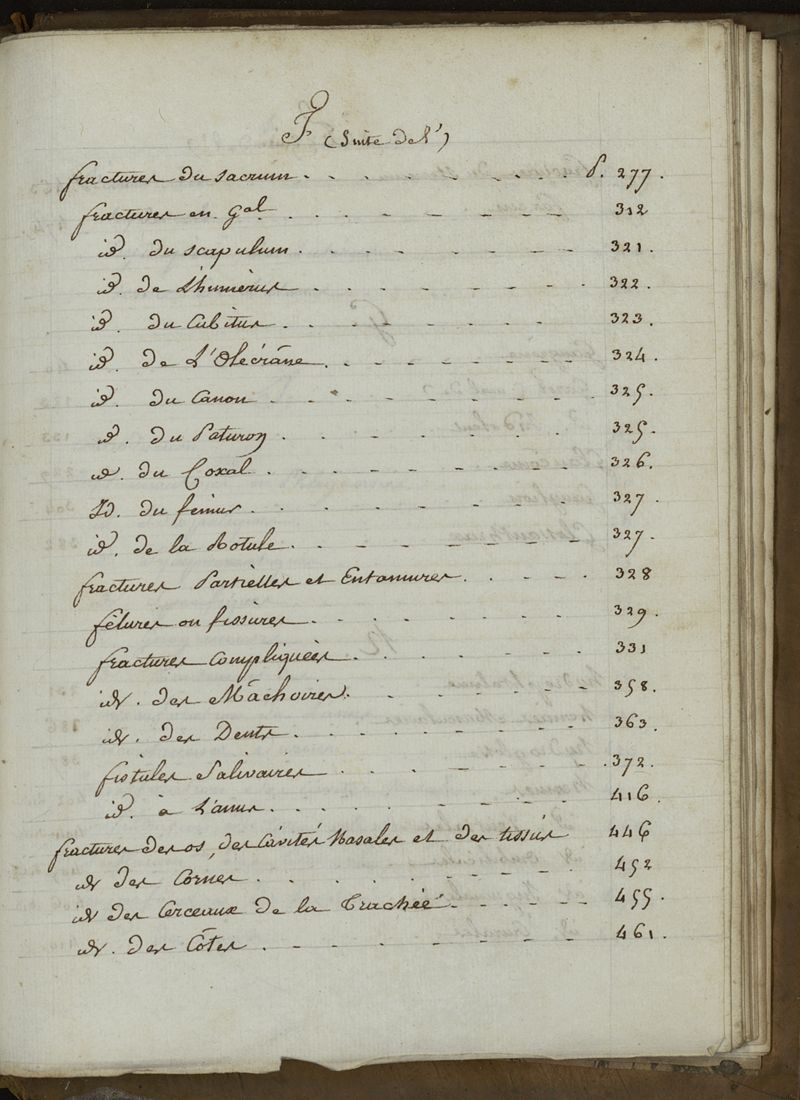 F (Suite de l')
fractures du sacrum . . . . . . . . . . p. 277.
fractures en gal . . . . . . . . . 312
id. du scapulum . . . . . . . . . 321.
id. de L'humérus . . . . . . . . . 322.
id. du Cubitus . . . . . . . . . 323.
id. de L'Olécrâne . . . . . . . . 324.
id. du Canon . . . . . . . . . . 325.
id. du Paturon . . . . . . . . . 325.
id. du Coxal . . . . . . . . . . 326.
Id. du fémur . . . . . . . . . . 327.
id. de la Rotule . . . . . . . . 327.
fractures Partielles et Entamures . . . . 328
fêlures ou fissures . . . . . . . . 329.
fractures Compliquées . . . . . . . 331
id. des Mâchoires . . . . . . . 358.
id. des Dents . . . . . . . . . 363.
fistules Salivaires . . . . . . . . 372.
id. à L'anus . . . . . . . . . . 416.
fractures des os, des Cavités Nasales et des tissus 446
id des Cornes . . . . . . . . . 452
id des Cerceaux de la Trachée . . . . . 455.
id. des Côtes . . . . . . . . . 461.